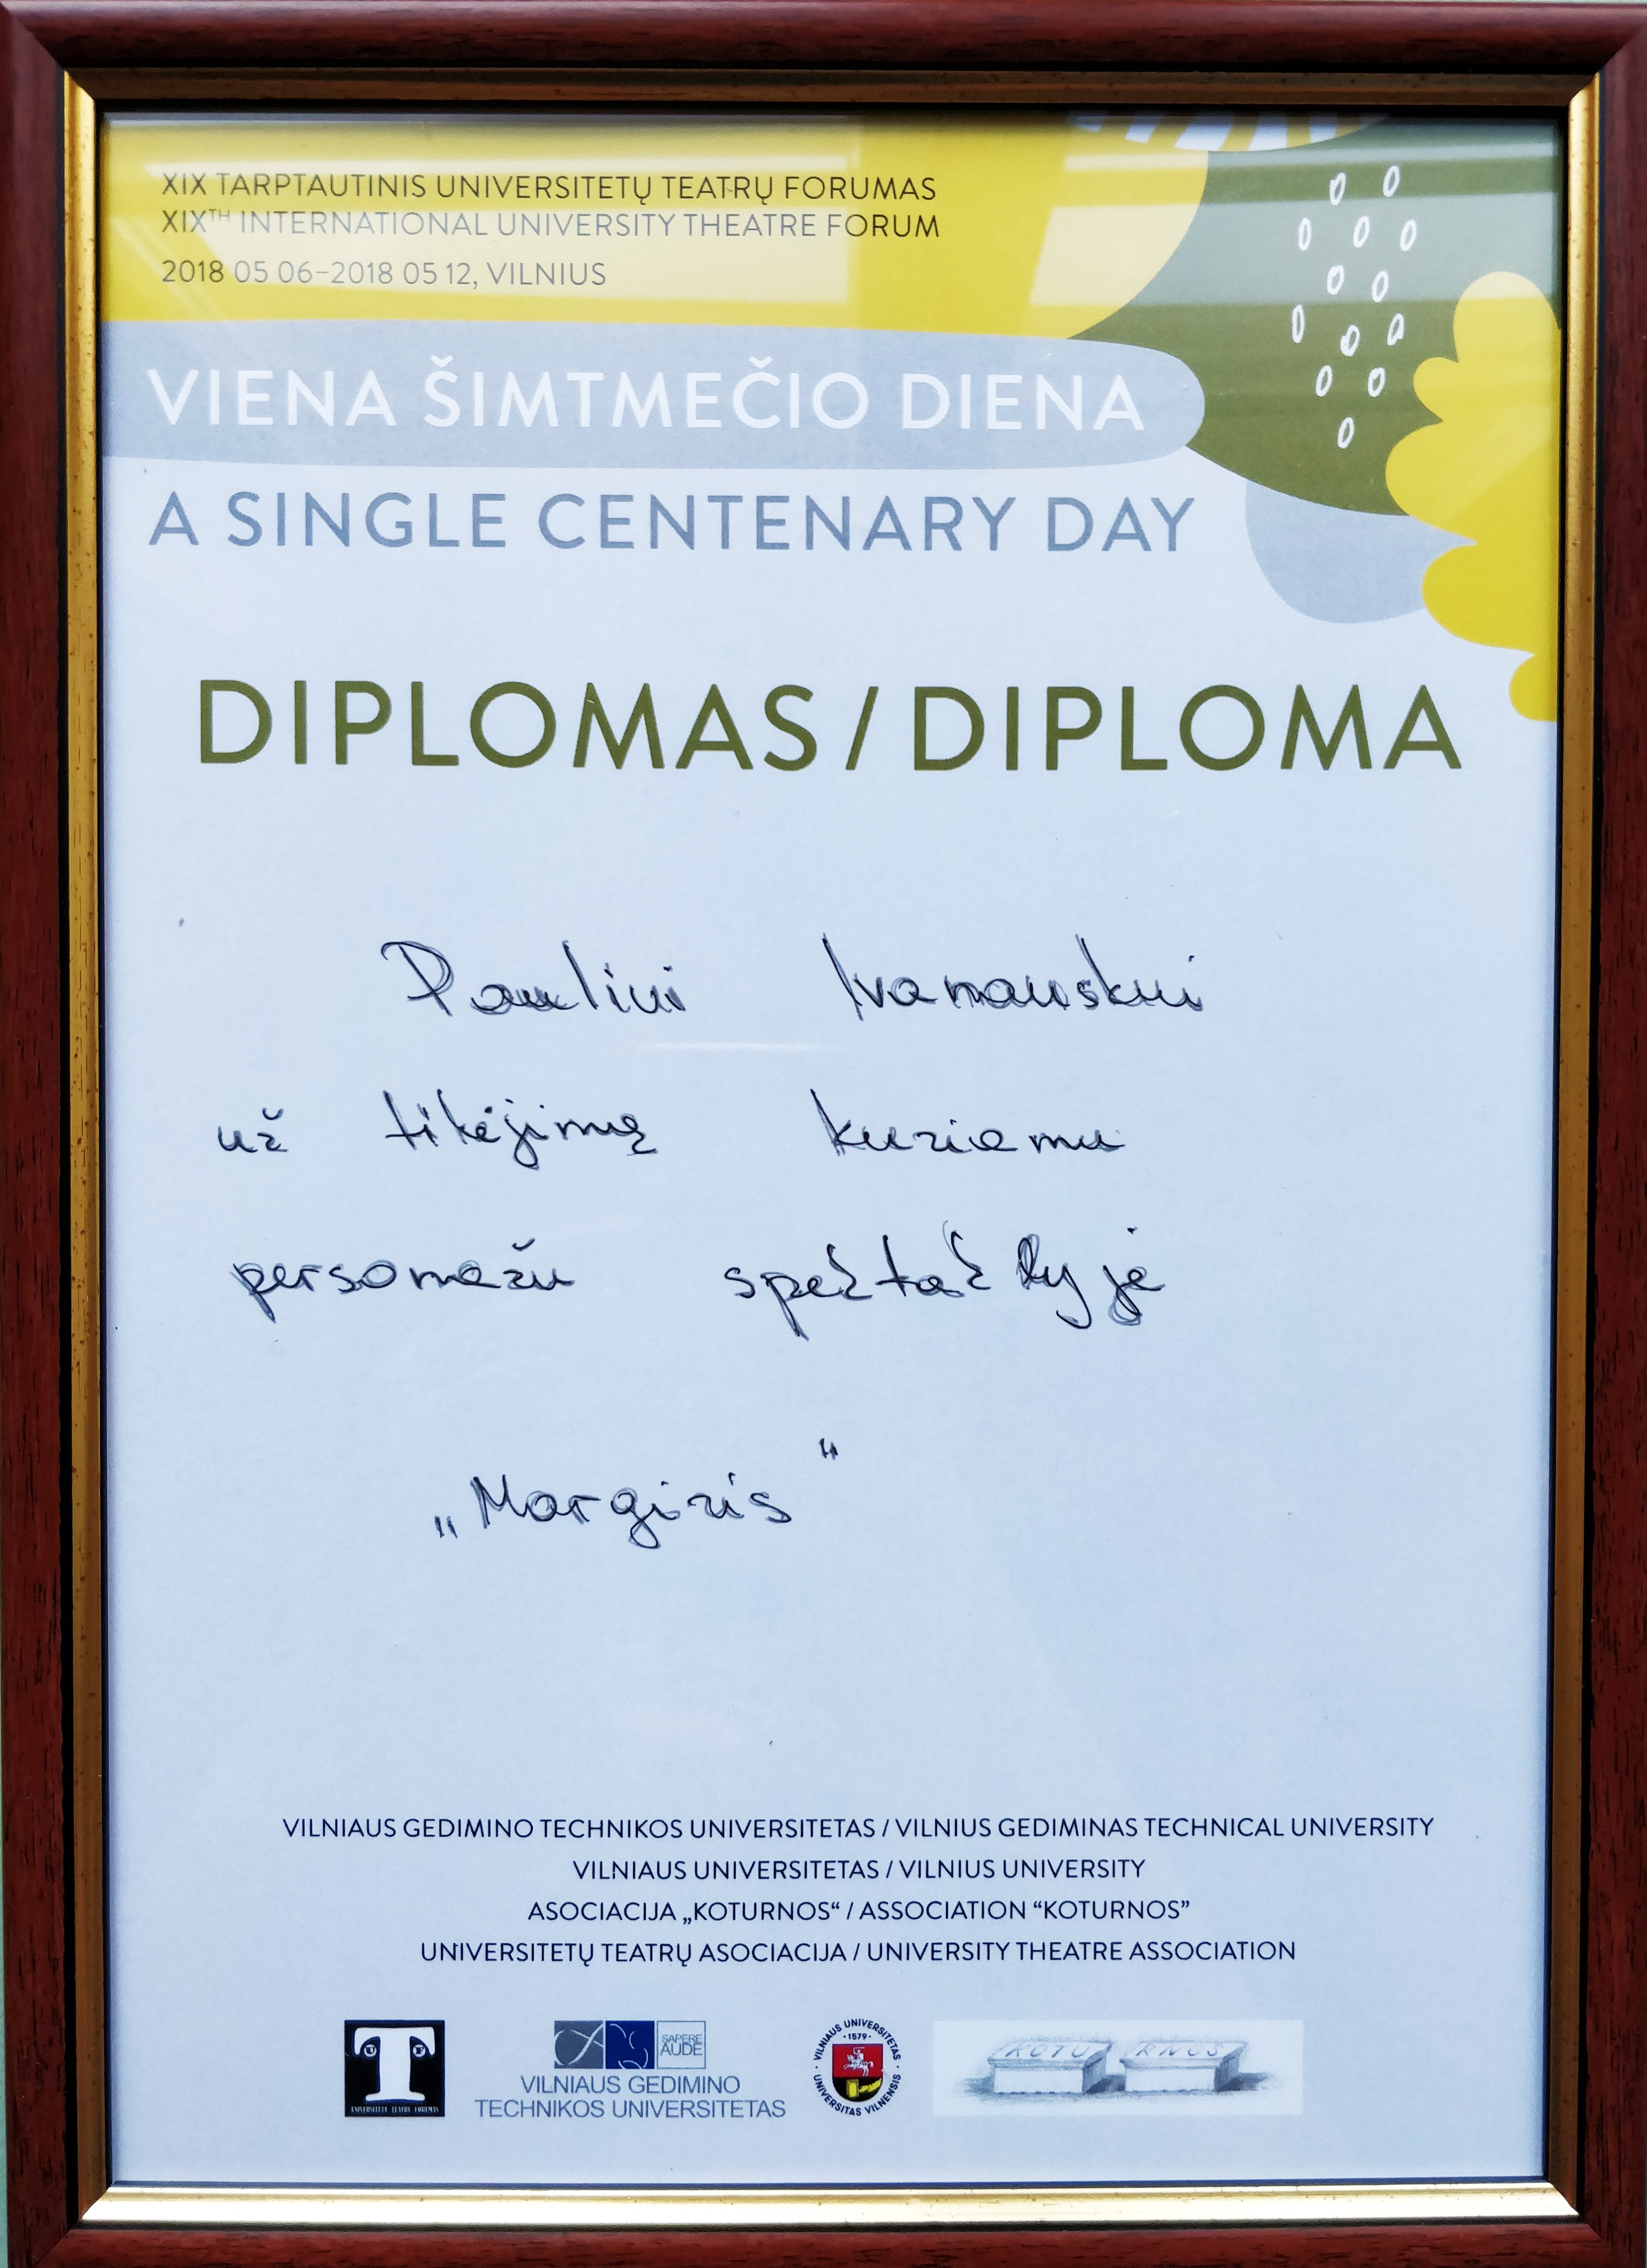 XIX TARPTAUTINIS UNIVERSITETŲ TEATRŲ FORUMAS
XIXTH INTERNATIONAL UNIVERSITY THEATRE FORUM
2018 05 06–2018 05 12, VILNIUS
VIENA ŠIMTMEČIO DIENA
A SINGLE CENTENARY DAY
DIPLOMAS / DIPLOMA
Pauliui Ivanauskui
už tikėjimą kuriamu
personažu spektaklyje
„Margiris“
VILNIAUS GEDIMINO TECHNIKOS UNIVERSITETAS / VILNIUS GEDIMINAS TECHNICAL UNIVERSITY
VILNIAUS UNIVERSITETAS / VILNIUS UNIVERSITY
ASOCIACIJA „KOTURNOS“ / ASSOCIATION “KOTURNOS”
UNIVERSITETŲ TEATRŲ ASOCIACIJA / UNIVERSITY THEATRE ASSOCIATION
T
UNIVERSITETŲ TEATRŲ FORUMAS
SAPERE
AUDE
VILNIAUS GEDIMINO
TECHNIKOS UNIVERSITETAS
VILNIAUS UNIVERSITETAS
·1579·
UNIVERSITAS VILNENSIS
KOTU RNOS